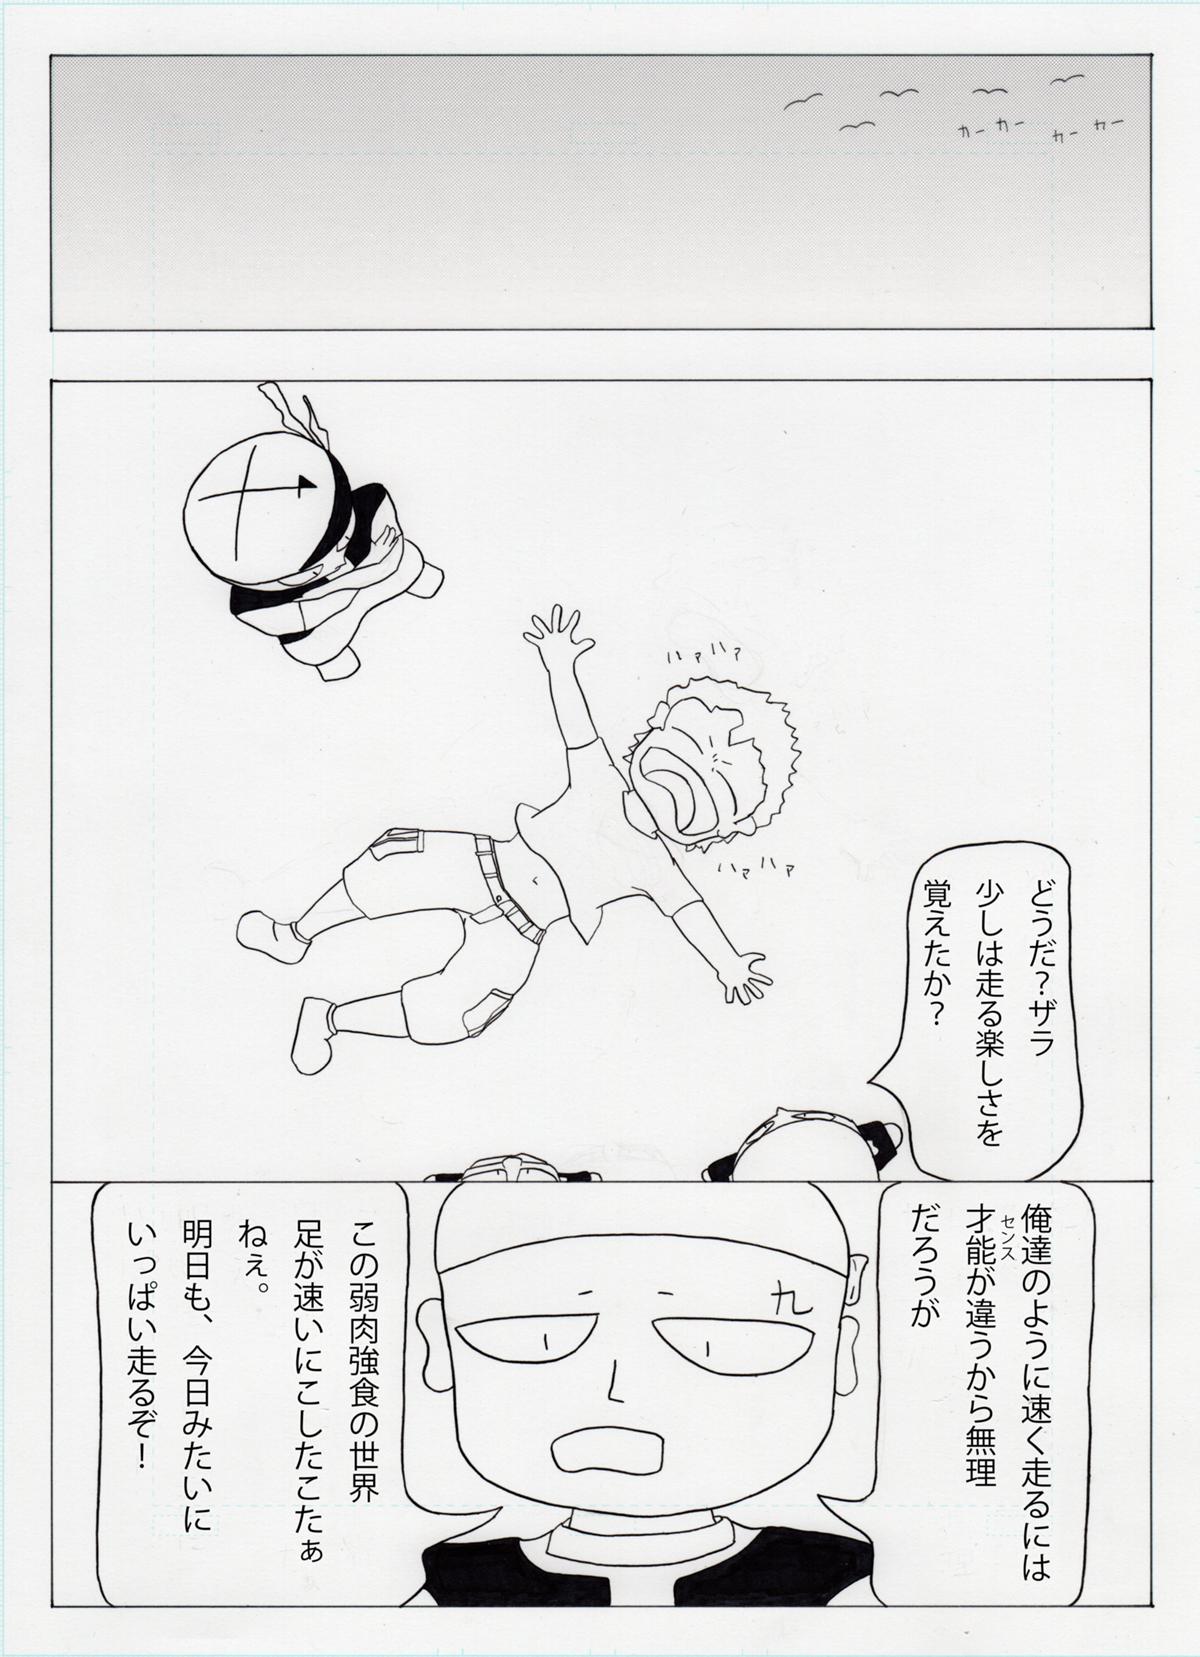 カー カー
カー カー
ハァハァ
ハァハァ
どうだ？ザラ
少しは走る楽しさを
覚えたか？
俺達のように速く走るには
才能が違うから無理
センス
だろうが
九
この弱肉強食の世界
足が速いにこしたこたぁ
ねぇ。
明日も、今日みたいに
いっぱい走るぞ！